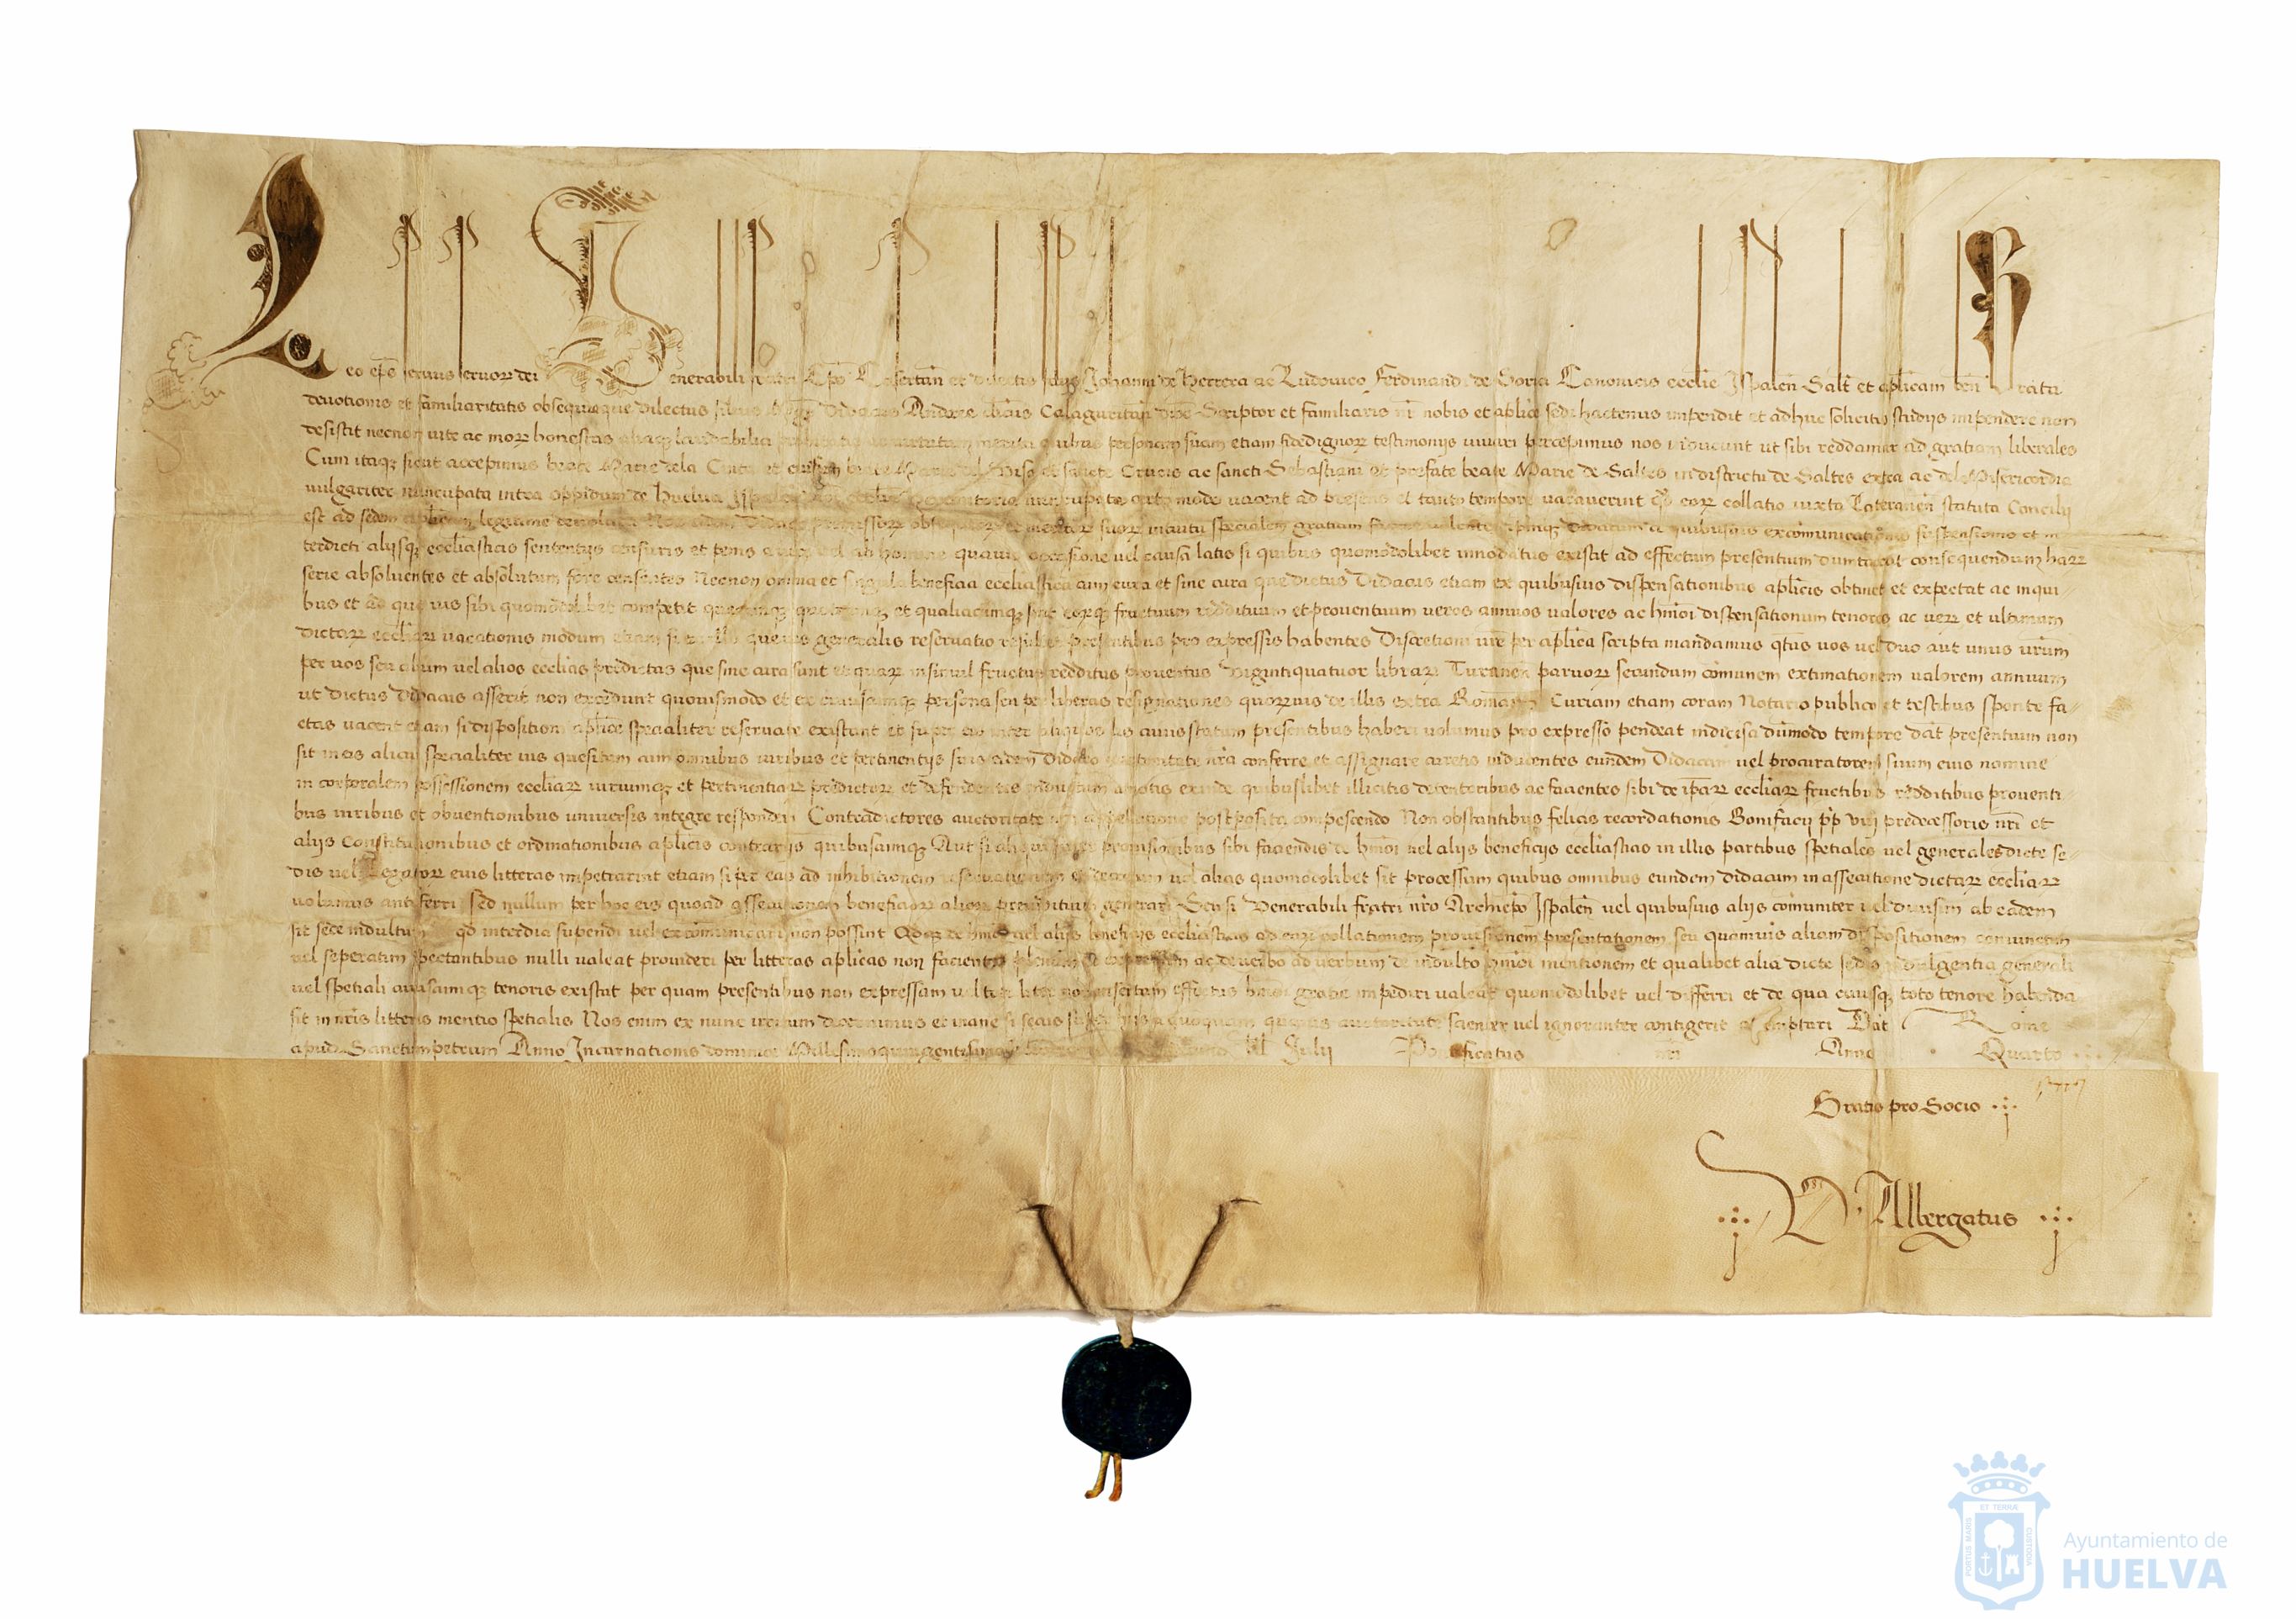 Leo ep̃s servus servorꝝ dei Venerabili fratri Ep̃o Casertañ et dilectis filijs Johanni de Herrera ac Ludovico Ferdinandi de Soria Canonicis ecclie Ispaleñ Salt̃ et aplicam beñ Grata
devotionis et familiaritatis obsequia que dilectus filius Didacus Andree Calaguritañ Scriptor et familiaris nr̃ nobis et aplice sedi hactenus impendit et adhuc solicitis studijs impendere non
desistit necnon vite ac morꝝ honestas aliaqꝫ laudabilia merita quibus personam suam etiam fidedignorꝝ testimonijs iuvari percepimus nos inducunt ut sibi reddamur ad gratiam liberales
Cum itaqꝫ sicut accepimus beate Marie dela Cinta et beate Marie et sancte Crucis ac sancti Sebastiani et prefate beate Marie de Saltes in districtu de Saltes extra ac dela Misericordia
vulgariter nuncupata intra oppidum de Huelva certo modo vacent ad presens et tanto tempore vacaverint qđ earꝝ collatio iuxta Lateraneñ statuta Concilij
est ad sedem aplicam legitime devoluta Nos Didaco premissorꝝ obsequiorꝝ et meritorꝝ suorꝝ intuitu specialem gratiam facere volentes ipsumqꝫ Didacum a quibusvis excomunicationis suspensionis et in
terdicti alijsqꝫ ecclesiasticis sententijs censuris et penis a iure vel ab homine quavis occasione vel causa latis si quibus quomodolibet innodatus existit ad effectum presentium duntaxat consequendum harꝝ
serie absolventes et absolutum fore censentes Necnon omnia et singula beneficia ecclesiastica cum cura et sine cura que dictus Didacus etiam ex quibusvis dispensationibus aplicis obtinet et expectat ac in qui-
bus et ad que ius sibi quomodolibet competit quecunqꝫ quotcunqꝫ et qualiacunqꝫ sint eorqꝫ fructuum reddituum et proventuum veros annuos valores ac hm̃oi dispensationum tenores ac verꝝ et ultimum
dictarꝝ ecclarꝝ vacationis modum etiam si ex illo quevis generalis reservatio resultet presentibus pro expressis habentes Discretioni vr̃e per aplica scripta mandamus qt̃us vos vel duo aut unus vr̃um
per vos seu alium vel alios ecclias predictas que sine cura sunt et quarꝝ insimul fructus redditus proventus vigintiquatuor librarꝝ Turoneñ parvorꝝ secundum comunem extimationem valorem annuum
ut dictus Didacus asserit non excedunt quovismodo et ex cuiuscunqꝫ persona seu per liberas resignationes quorꝝvis de illis extra Romanam Curiam etiam coram Notario publico et testibus sponte fa-
ctas vacent etiam si dispositioni aplice specialiter reservate existant et super eis inter aliquos lis cuius statum presentibus haberi volumus pro expresso pendeat indecisa dummodo tempore dat̃ presentium non
sit in eis alicui specialiter ius quesitum cum omnibus iuribus et pertinentijs suis eidem Didaco auctoritate nr̃a conferre et assignare curetis inducentes eundem Didacum vel procuratorem suum eius nomine
in corporalem possessionem ecclarꝝ iuriumqꝫ et pertinentiarꝝ predictorꝝ et defendentes inductum amotis exinde quibuslibet illicitis detentoribus ac facientes sibi de ip̃arꝝ ecclarꝝ fructibus redditibus proventi-
bus iuribus et obventionibus universis integre responderi Contradictores auctoritate nr̃a appellatione postposita compescendo Non obstantibus felicis recordationis Bonifacij p̃p̃ viij predecessoris nr̃i et
alijs Constitutionibus et ordinationibus aplicis contrarijs quibuscunqꝫ Aut si aliqui super provisionibus sibi faciendis de hm̃oi vel alijs beneficijs ecclesiasticis in illis partibus speciales vel generales dicte se-
dis vel Legatorꝝ eius litteras impetrarint etiam si per eas ad inhibitionem reservationem et decretum vel alias quomodolibet sit processum quibus omnibus eundem Didacum in assecutione dictarꝝ ecclarꝝ
volumus anteferri sed nullum per hoc eis quoad assecutionem beneficiorꝝ aliorꝝ preiuditium generari Seu si Venerabili fratri nr̃o Archiep̃o Ispaleñ vel quibusvis alijs comuniter vel divisim ab eadem
sit sede indultum qđ interdici suspendi vel excomunicari non possint Qđqꝫ de hm̃oi vel alijs beneficijs ecclesiasticis ad earꝝ collationem provisionem presentationem seu quamvis aliam dispositionem coniunctim
vel separatim spectantibus nulli valeat provideri per litteras aplicas non facientes plenam et expressam ac de verbo ad verbum de indulto hm̃oi mentionem et qualibet alia dicte sedis indulgentia generali
vel spetiali cuiuscunqꝫ tenoris existat per quam presentibus non expressam vel totaliter non insertam effectus huiusmoi gratie impediri valeat quomodolibet vel differri et de qua cuiusqꝫ toto tenore habenda
sit in nr̃is litteris mentio spetialis Nos enim ex nunc irritum decernimus et inane si secus super his a quoquam quavis auctoritate scienter vel ignoranter contigerit attemptari Dat̃ Rome
apud Sanctumpetrum Anno Incarnationis dominice Millesimoquingentesimo Julij Pontificatus nr̃i Anno Quarto
Gratis pro Socio
Albergatus
ET TERRÆ
PORTUS MARIS
CUSTODIA
Ayuntamiento de
HUELVA